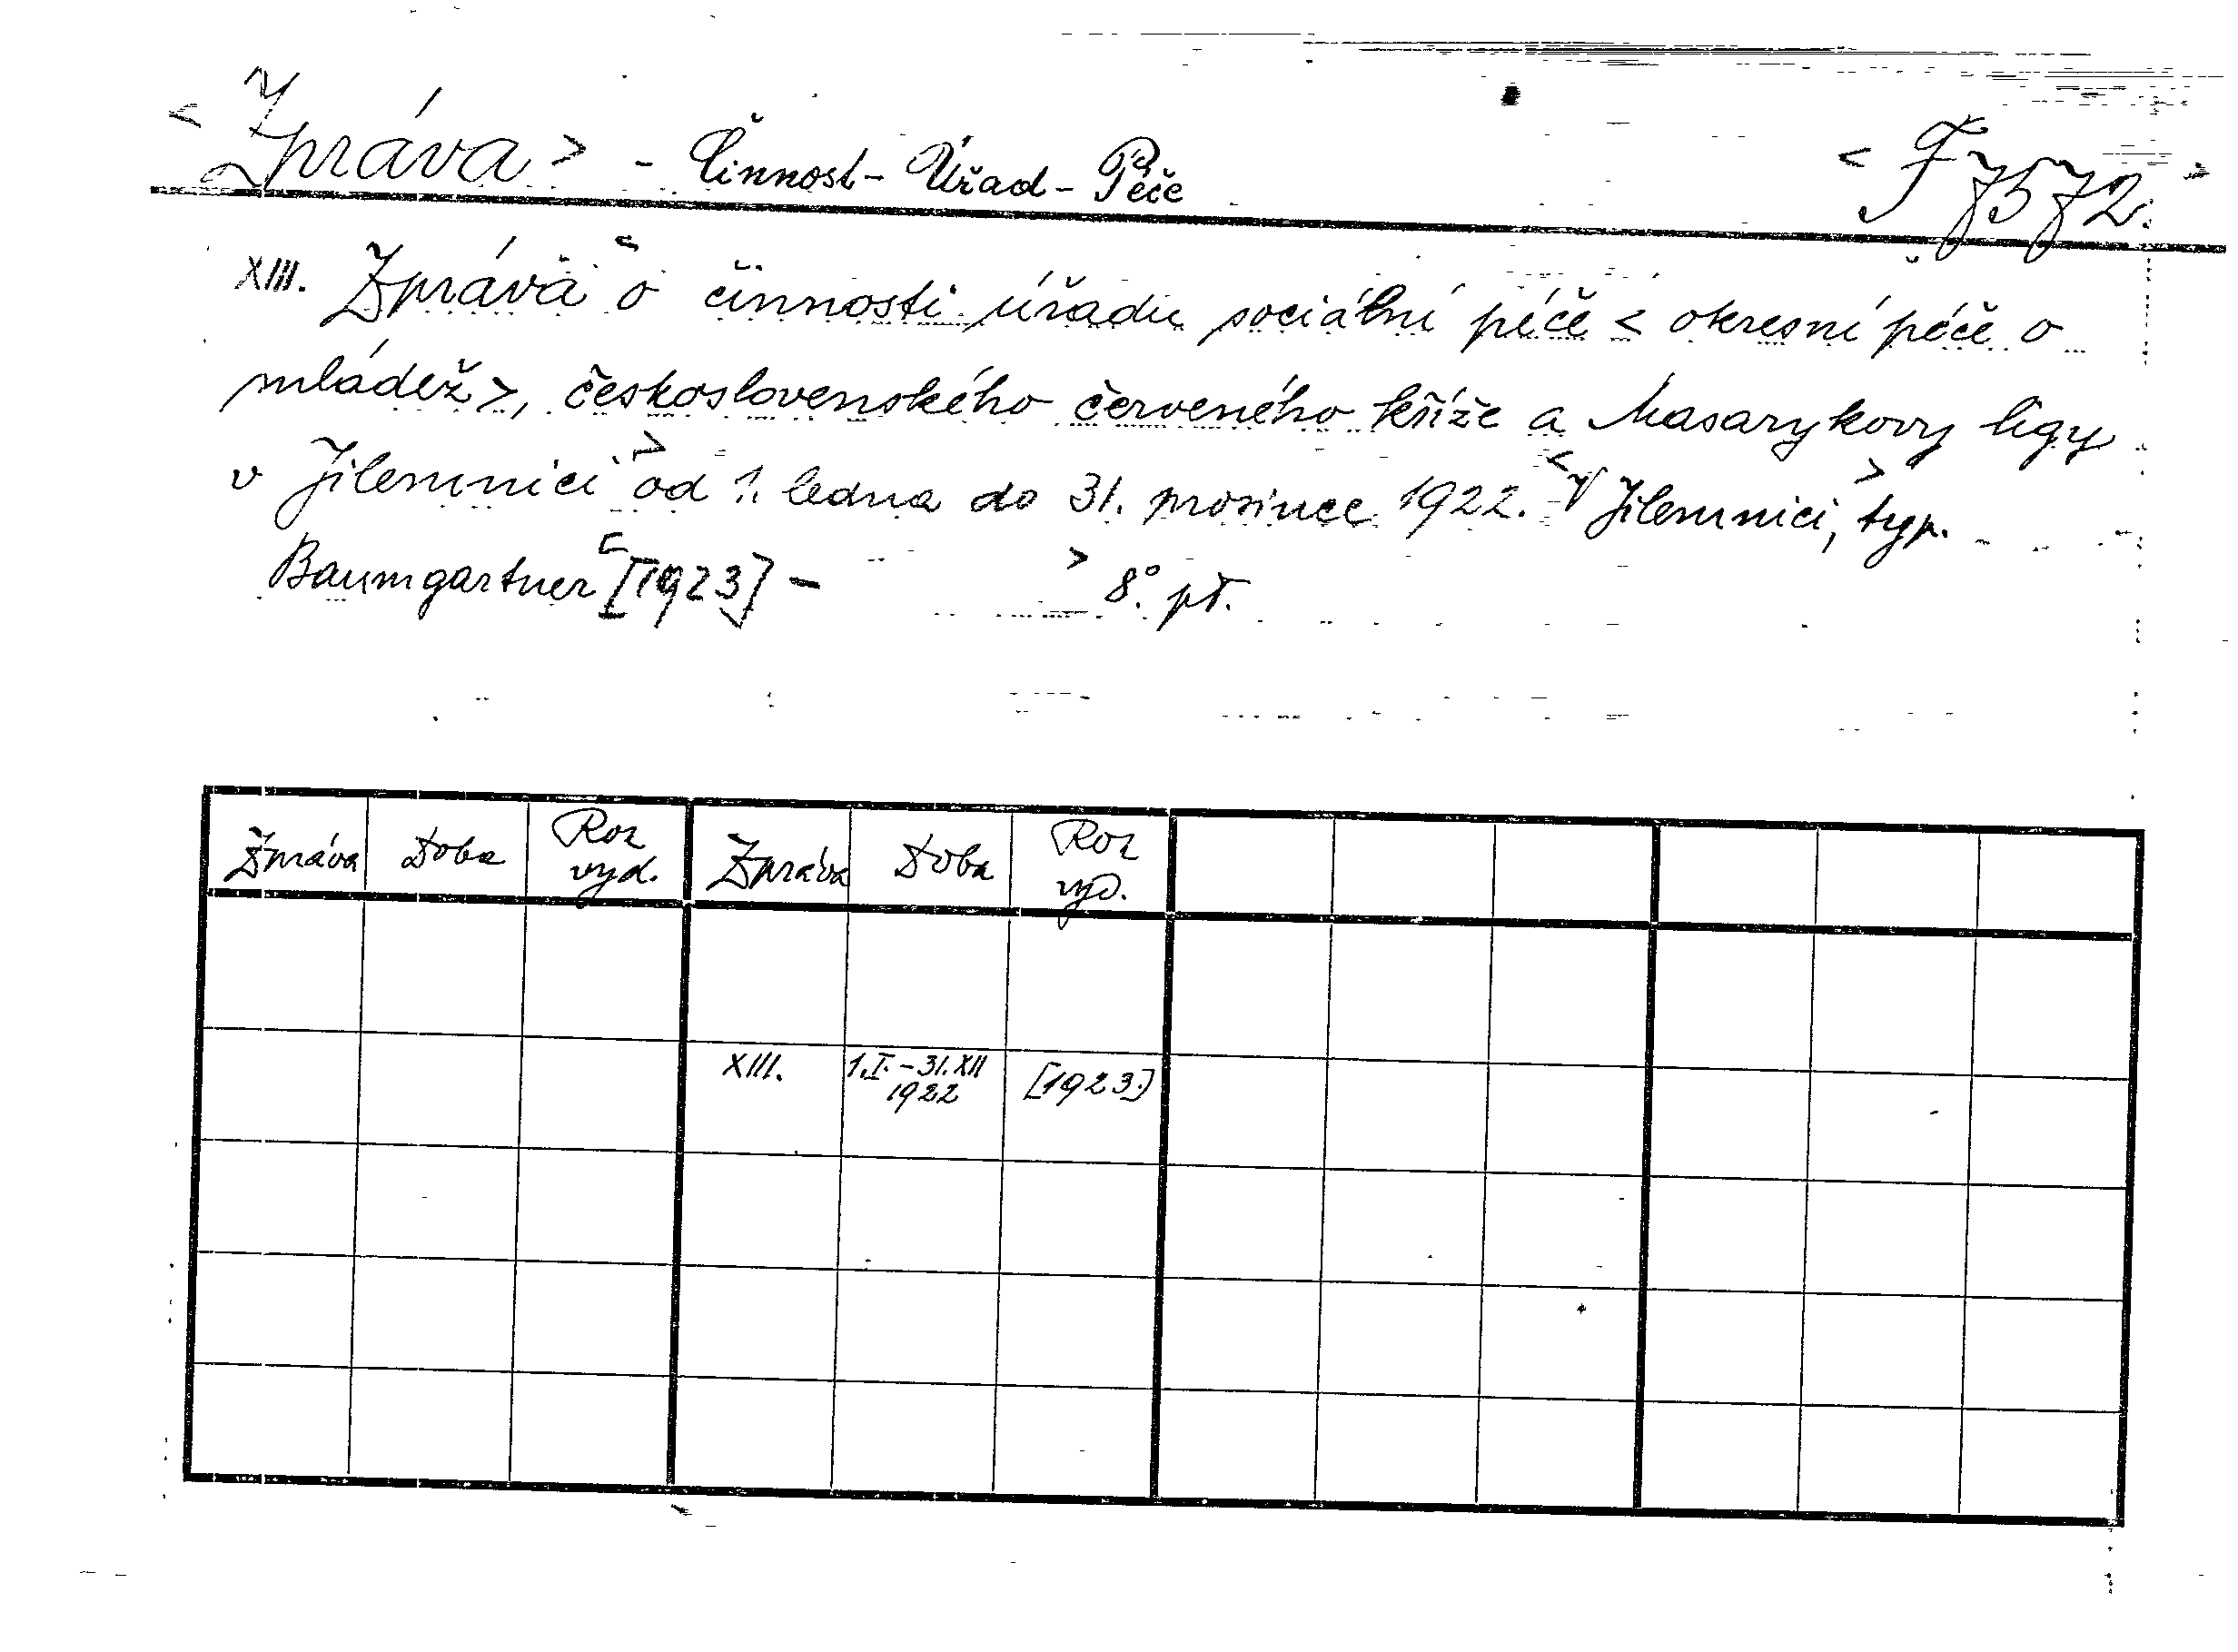 < Zpráva > - Činnost - Úřad - Péče < F 7572. >
XIII. Zpráva o činnosti úřadu sociální péče < okresní péče o
mládež >, československého červeného kříže a Masarykovy ligy
v Jilemnici > od 1. ledna do 31. prosince 1922. < V Jilemnici, > typ.
Baumgartner < [1923] - > 8°. př.
Zpráva Doba Rok vyd. Zpráva Doba Rok vyd.
XIII. 1.I. - 31.XII 1922 [1923.]